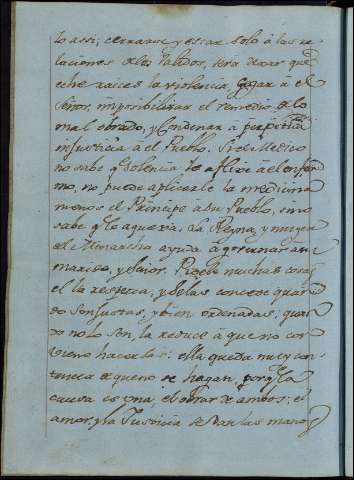 lo assi; cerrarse, y estar solo à las re
laciones de los Validos, será dexar que
eche raices la violencia, Cegar à el
Señor, imposibilitar el remedio de lo
mal obrado, y Condenar à perpetua
injusticia à el Pueblo. Si el Medico
no sabe q dolencia le aflixe à el enfer
mo, no puede aplicarle la medicina
menos el Principe a su Pueblo, sino
sabe q le aquexa. La Reyna, y muger
del Monarcha ayuda à governar à su
marido, y Señor. Puede muchas cosas
el la respecta, y se las concede quan
do son justas, y bien ordenadas, quan
do no lo son, la reduce à que no con
viene hacerlas: ella queda muy con
tenta de que no se hagan, porq la
causa es una, el obrar de ambos; el
amor, y la Justicia se dan las manos